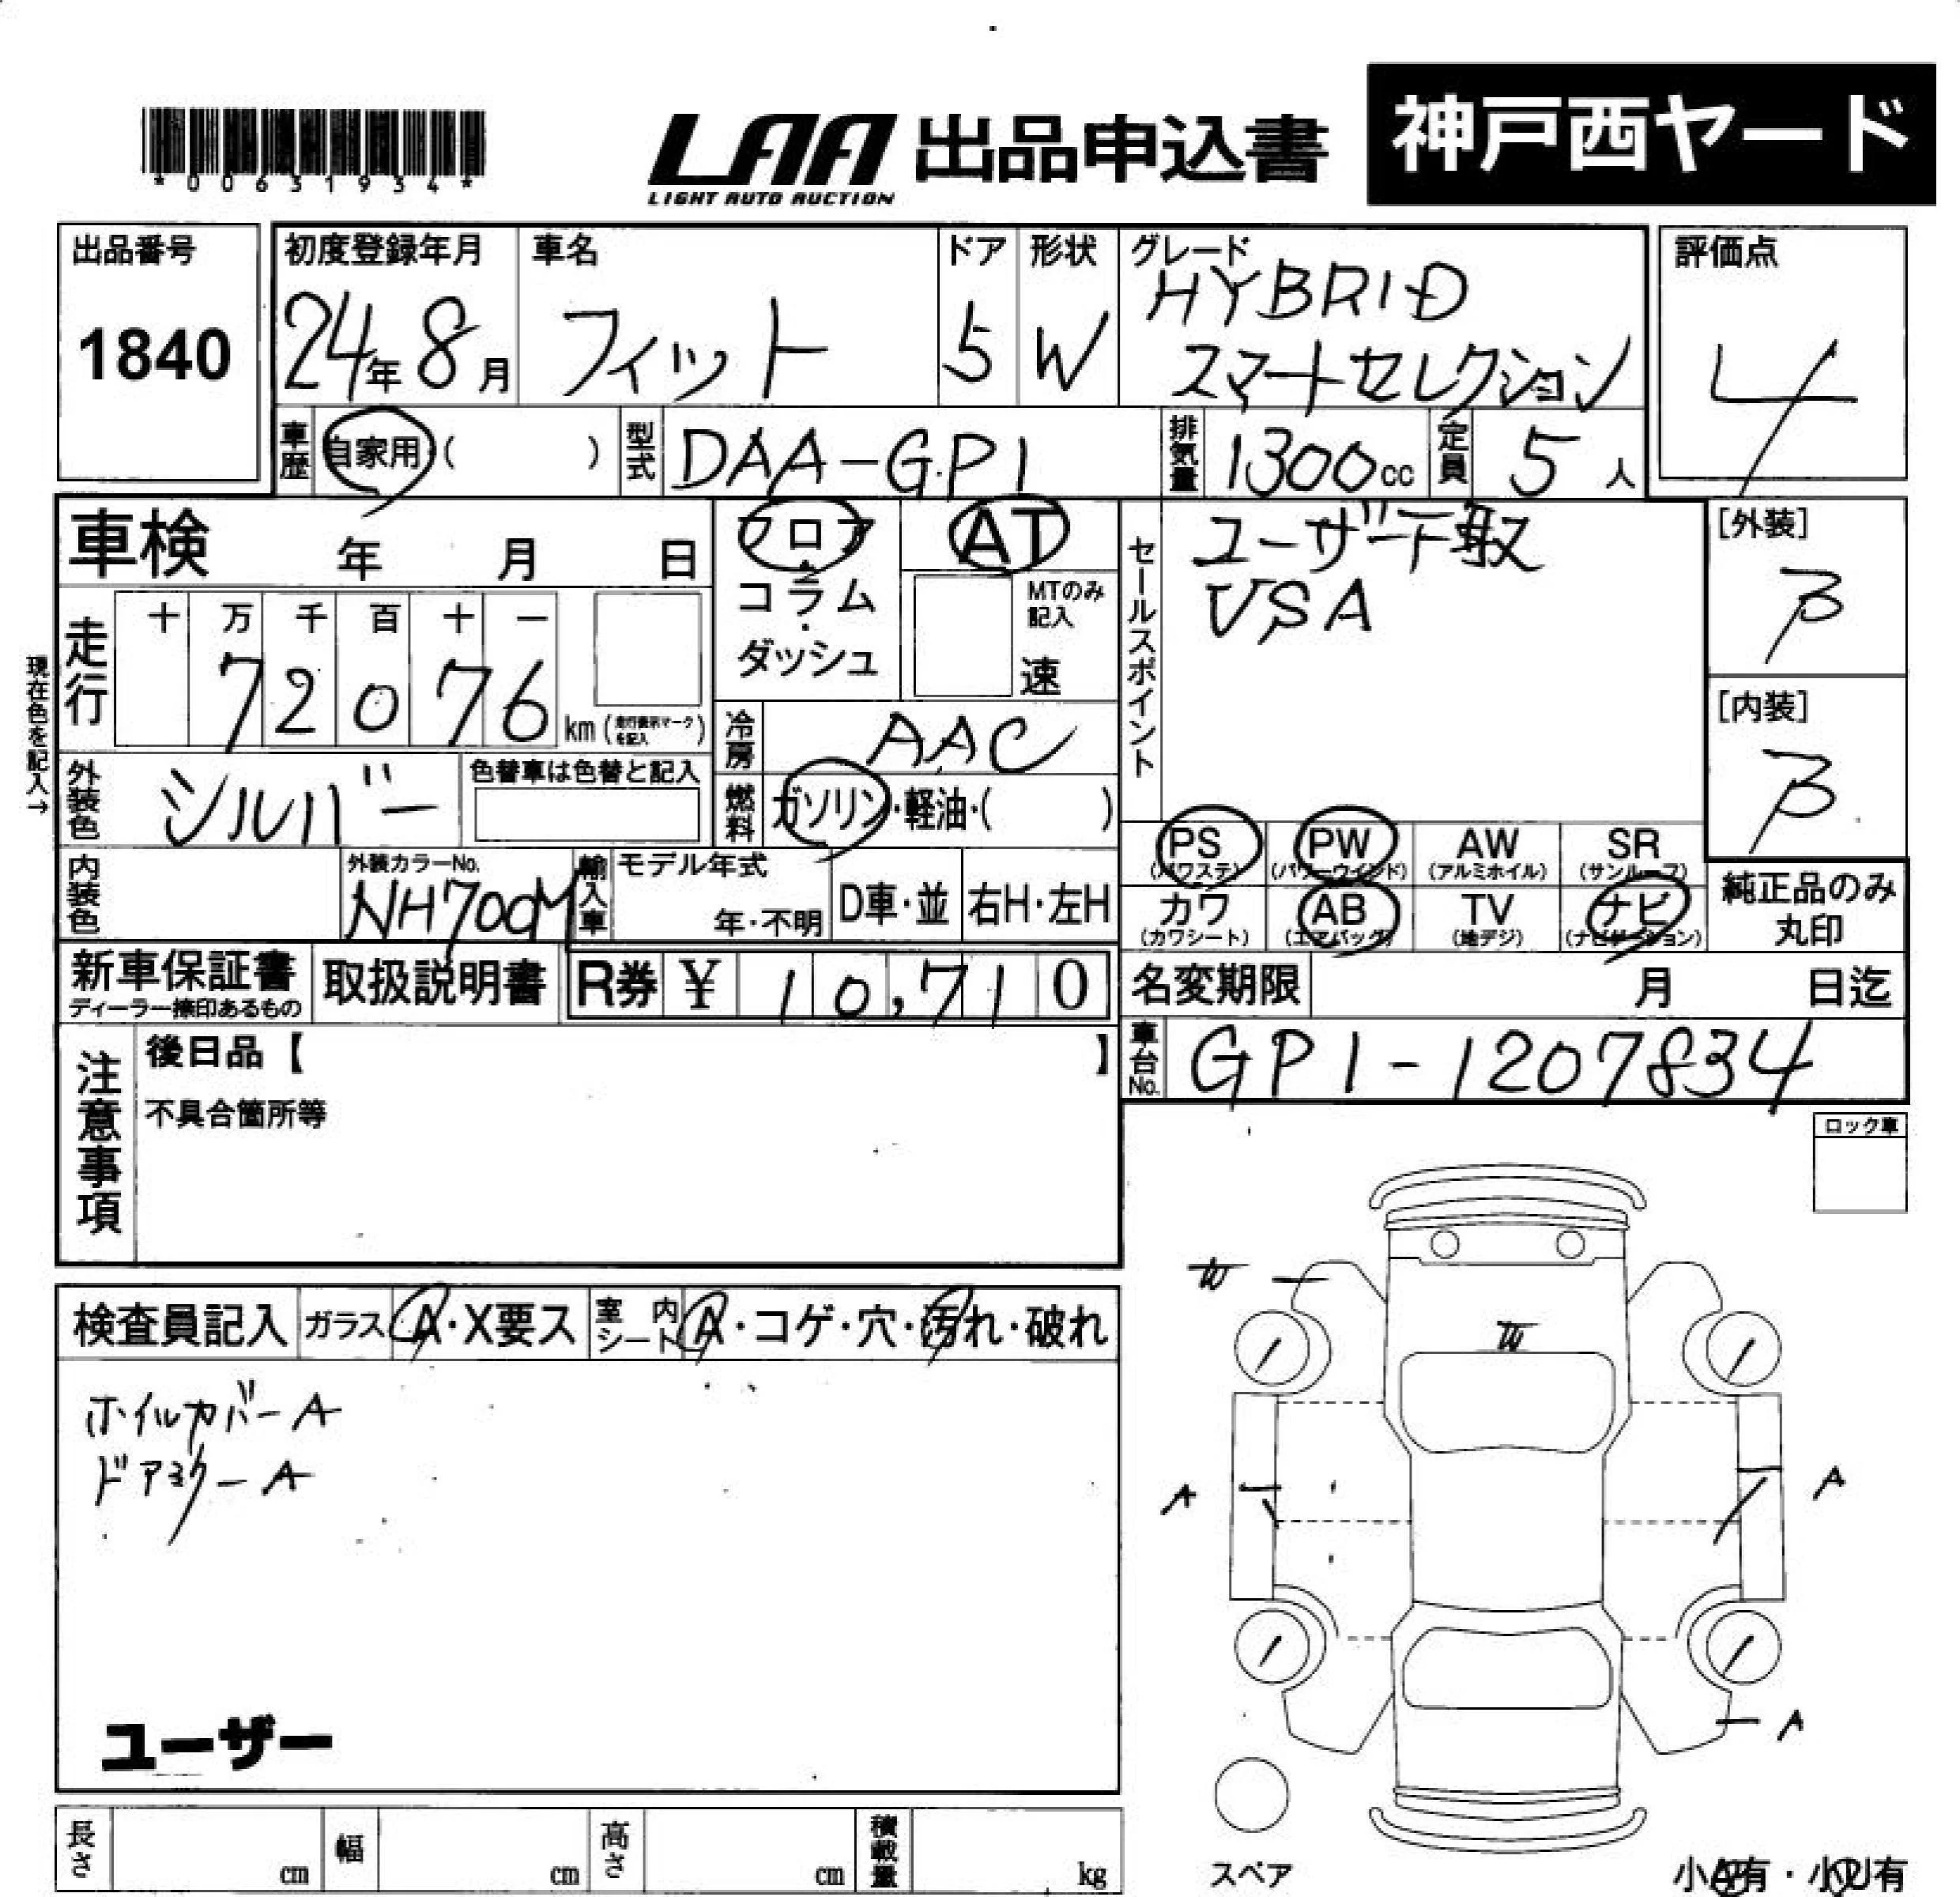 *00631934*
LAA 出品申込書 神戸西ヤード
LIGHT AUTO AUCTION
出品番号 1840
初度登録年月 24年8月
車名 フィット
ドア 5
形状 W
グレード HYBRID
スマートセレクション
評価点 4
車歴 自家用 ( )
型式 DAA-GP1
排気量 1300cc
定員 5人
車検 年 月 日
フロア・コラム・ダッシュ
AT
MTのみ記入
速
セールスポイント
ユーザー下取
VSA
[外装] B
[内装] B
現在色を記入→
走行 十 万 千 百 十 一
72076 km (走行表示マークを記入)
冷房 AAC
外装色 シルバー
色替車は色替と記入
燃料 ガソリン・軽油・( )
内装色
外装カラーNo. NH700M
輸入車 モデル年式 年・不明
D車・並 右H・左H
PS (パワステ) PW (パワーウインド) AW (アルミホイル) SR (サンルーフ)
カワ (カワシート) AB (エアバッグ) TV (地デジ) ナビ (ナビゲーション)
純正品のみ丸印
新車保証書 ディーラー捺印あるもの
取扱説明書
R券 ¥ 10,710
名変期限 月 日迄
車台No. GP1-1207834
注意事項
後日品【 】
不具合箇所等
ロック車
検査員記入 ガラス A・X要ス
室内シート A・コゲ・穴・汚れ・破れ
ホイルカバーA
ドアミラーA
ユーザー
W
W
A
A
A
スペア
長さ cm 幅 cm 高さ cm 積載量 kg
小A有・小U有